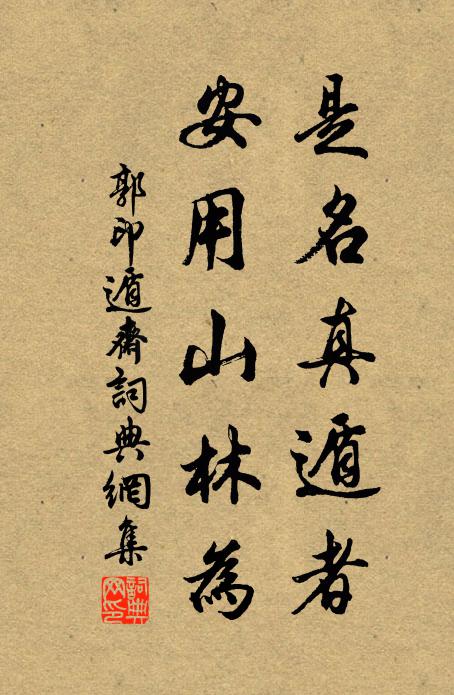 是名真遁者
安用山林為
郭印遁齋詞典網集
詞典网印